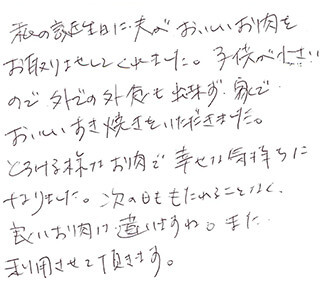 私の誕生日に、夫が おいしいお肉を
お取りよせしてくれました。子供が小さい
ので 外での外食も出来ず、家で
おいしいすき焼きをいただきました。
とろける様なお肉で 幸せな気持ちに
なりました。次の日ももたれることなく、
良いお肉は違いますね。また
利用させて頂きます。